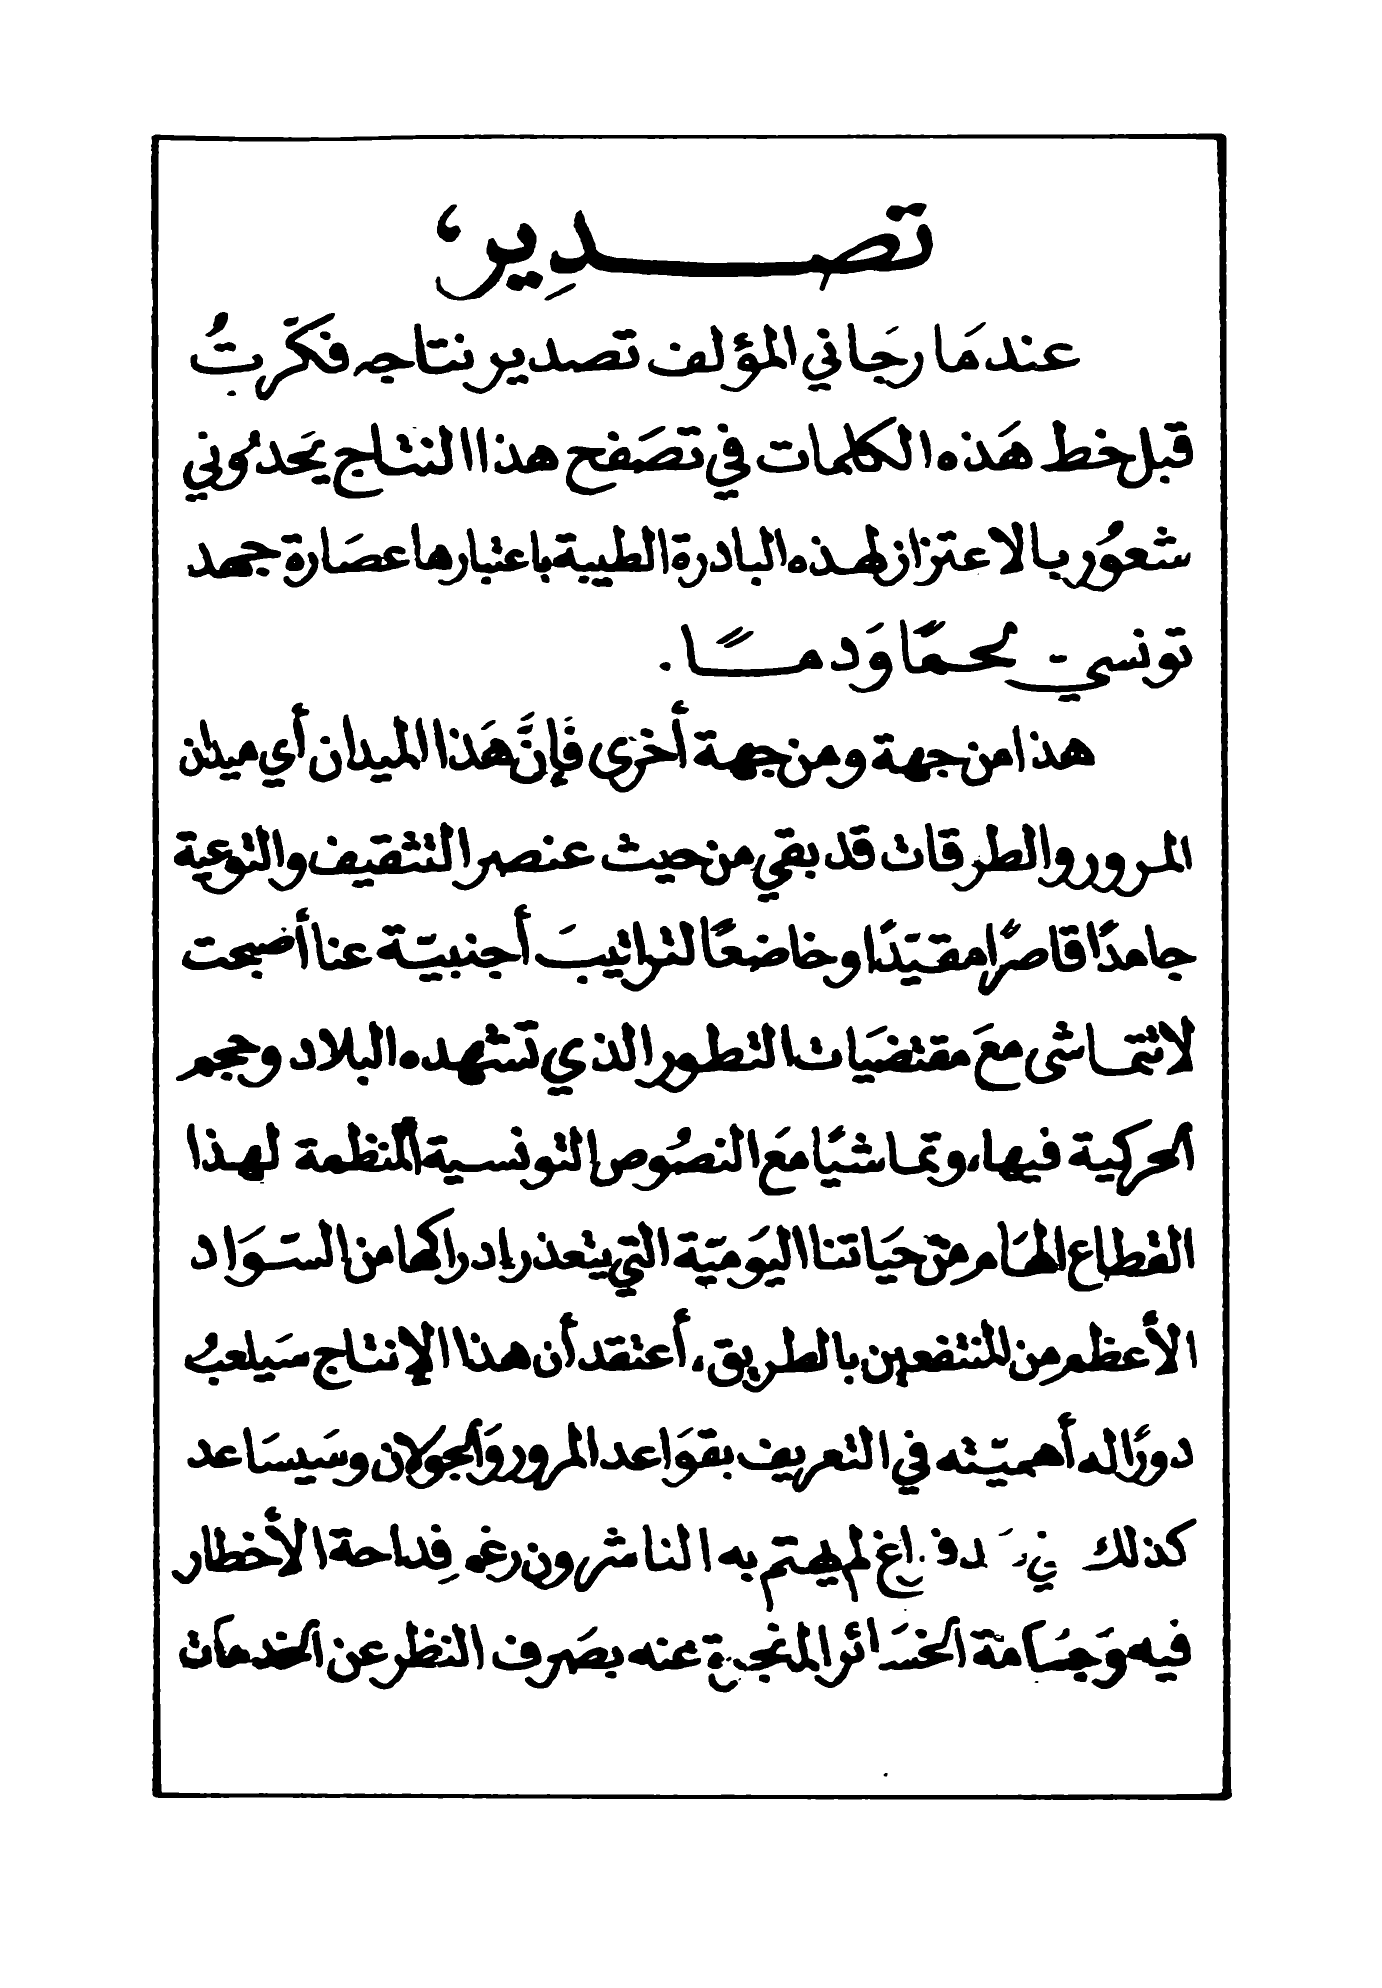 تصـــدِير،
عندمَا رجَاني المؤلف تصدير نتاجه فكّربتُ
قبل خط هَذه الكلمات في تصَفح هذا النتاج يَحدُوني
شعوُر بالاعتزاز لهذه البادرة الطيبة باعتبارها عصَارة جهد
تونسي لحمًا وَدمًـا.
هذا من جهة ومن جهة أخرى فَإنَّ هَذا الميدان أي ميدان
المرور والطرقات قد بقي من حيث عنصر التثقيف والتوعية
جامدًا قاصرًا مقيَّدًا وخاضعًا لتراتيبَ أجنبيّة عنا أصبحت
لا تتماشى معَ مقتضَيات التطور الذي تشهده البلاد وحجم
الحركية فيها، وتماشيًا مَع النصُوص التونسية المنظمة لهذا
القطاع الهَام من حيَاتنا اليَوميّة التي يتعذر إدراكها من السّوَاد
الأعظم من المنتفعين بالطريق، أعتقد أن هذا الإنتاج سَيلعبُ
دورًا له أهميّته في التعريف بقوَاعد المرور وَالجولان وسَيسَاعد
كذلك في سَد فراغ لم يهتم به الناشرون رغم فِداحة الأخطار
فيه وَجسَامة الخسَائر المنجرة عنه بصَرف النظر عن الخدمات